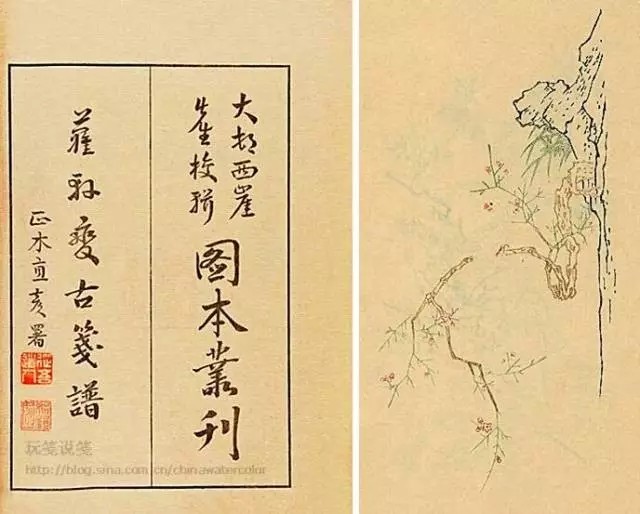 大邨西崖
先生校輯
图本叢刊
蘿軒變古箋譜
正木直彦署
玩笺说笺
http://blog.sina.com.cn/chinawatercolor